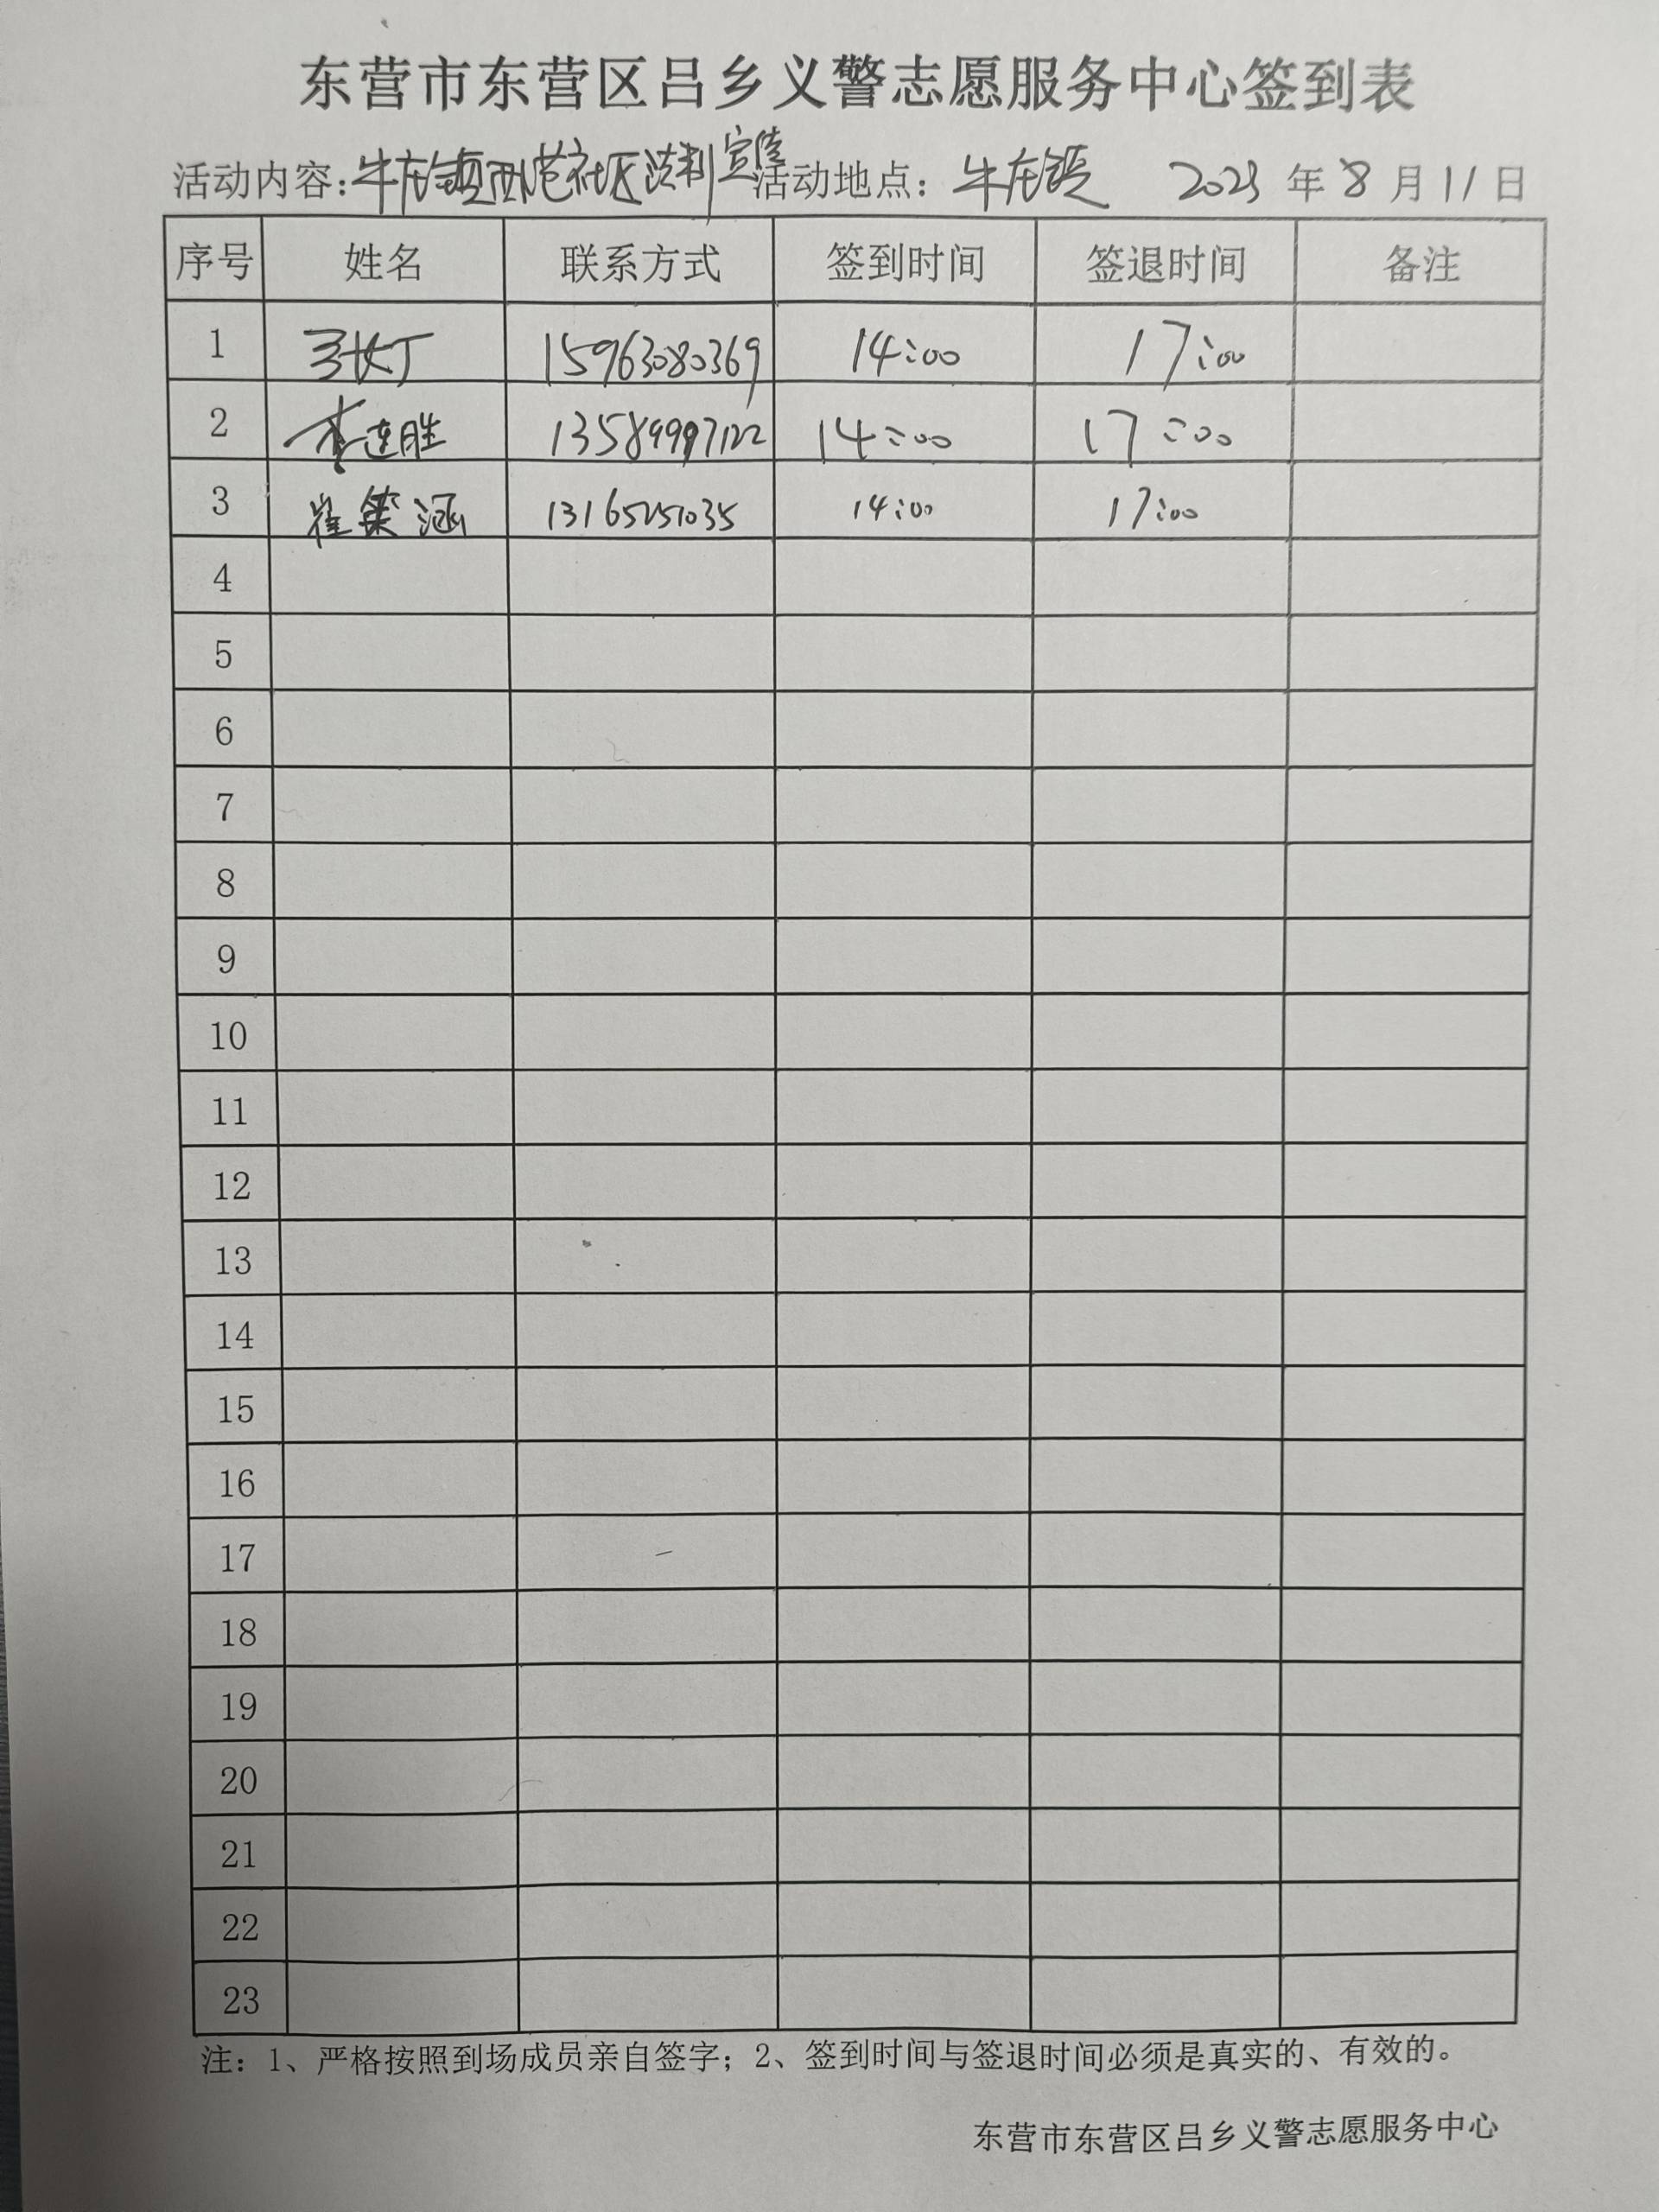 东营市东营区吕乡义警志愿服务中心签到表
活动内容：牛庄镇西范社区法制宣传 活动地点：牛庄镇 2023 年 8 月 11 日
序号 姓名 联系方式 签到时间 签退时间 备注
1 15963080369 14:00 17:00
2 李连胜 13589997122 14:00 17:00
3 崔 涵 13165251035 14:00 17:00
4
5
6
7
8
9
10
11
12
13
14
15
16
17
18
19
20
21
22
23
注：1、严格按照到场成员亲自签字；2、签到时间与签退时间必须是真实的、有效的。
东营市东营区吕乡义警志愿服务中心